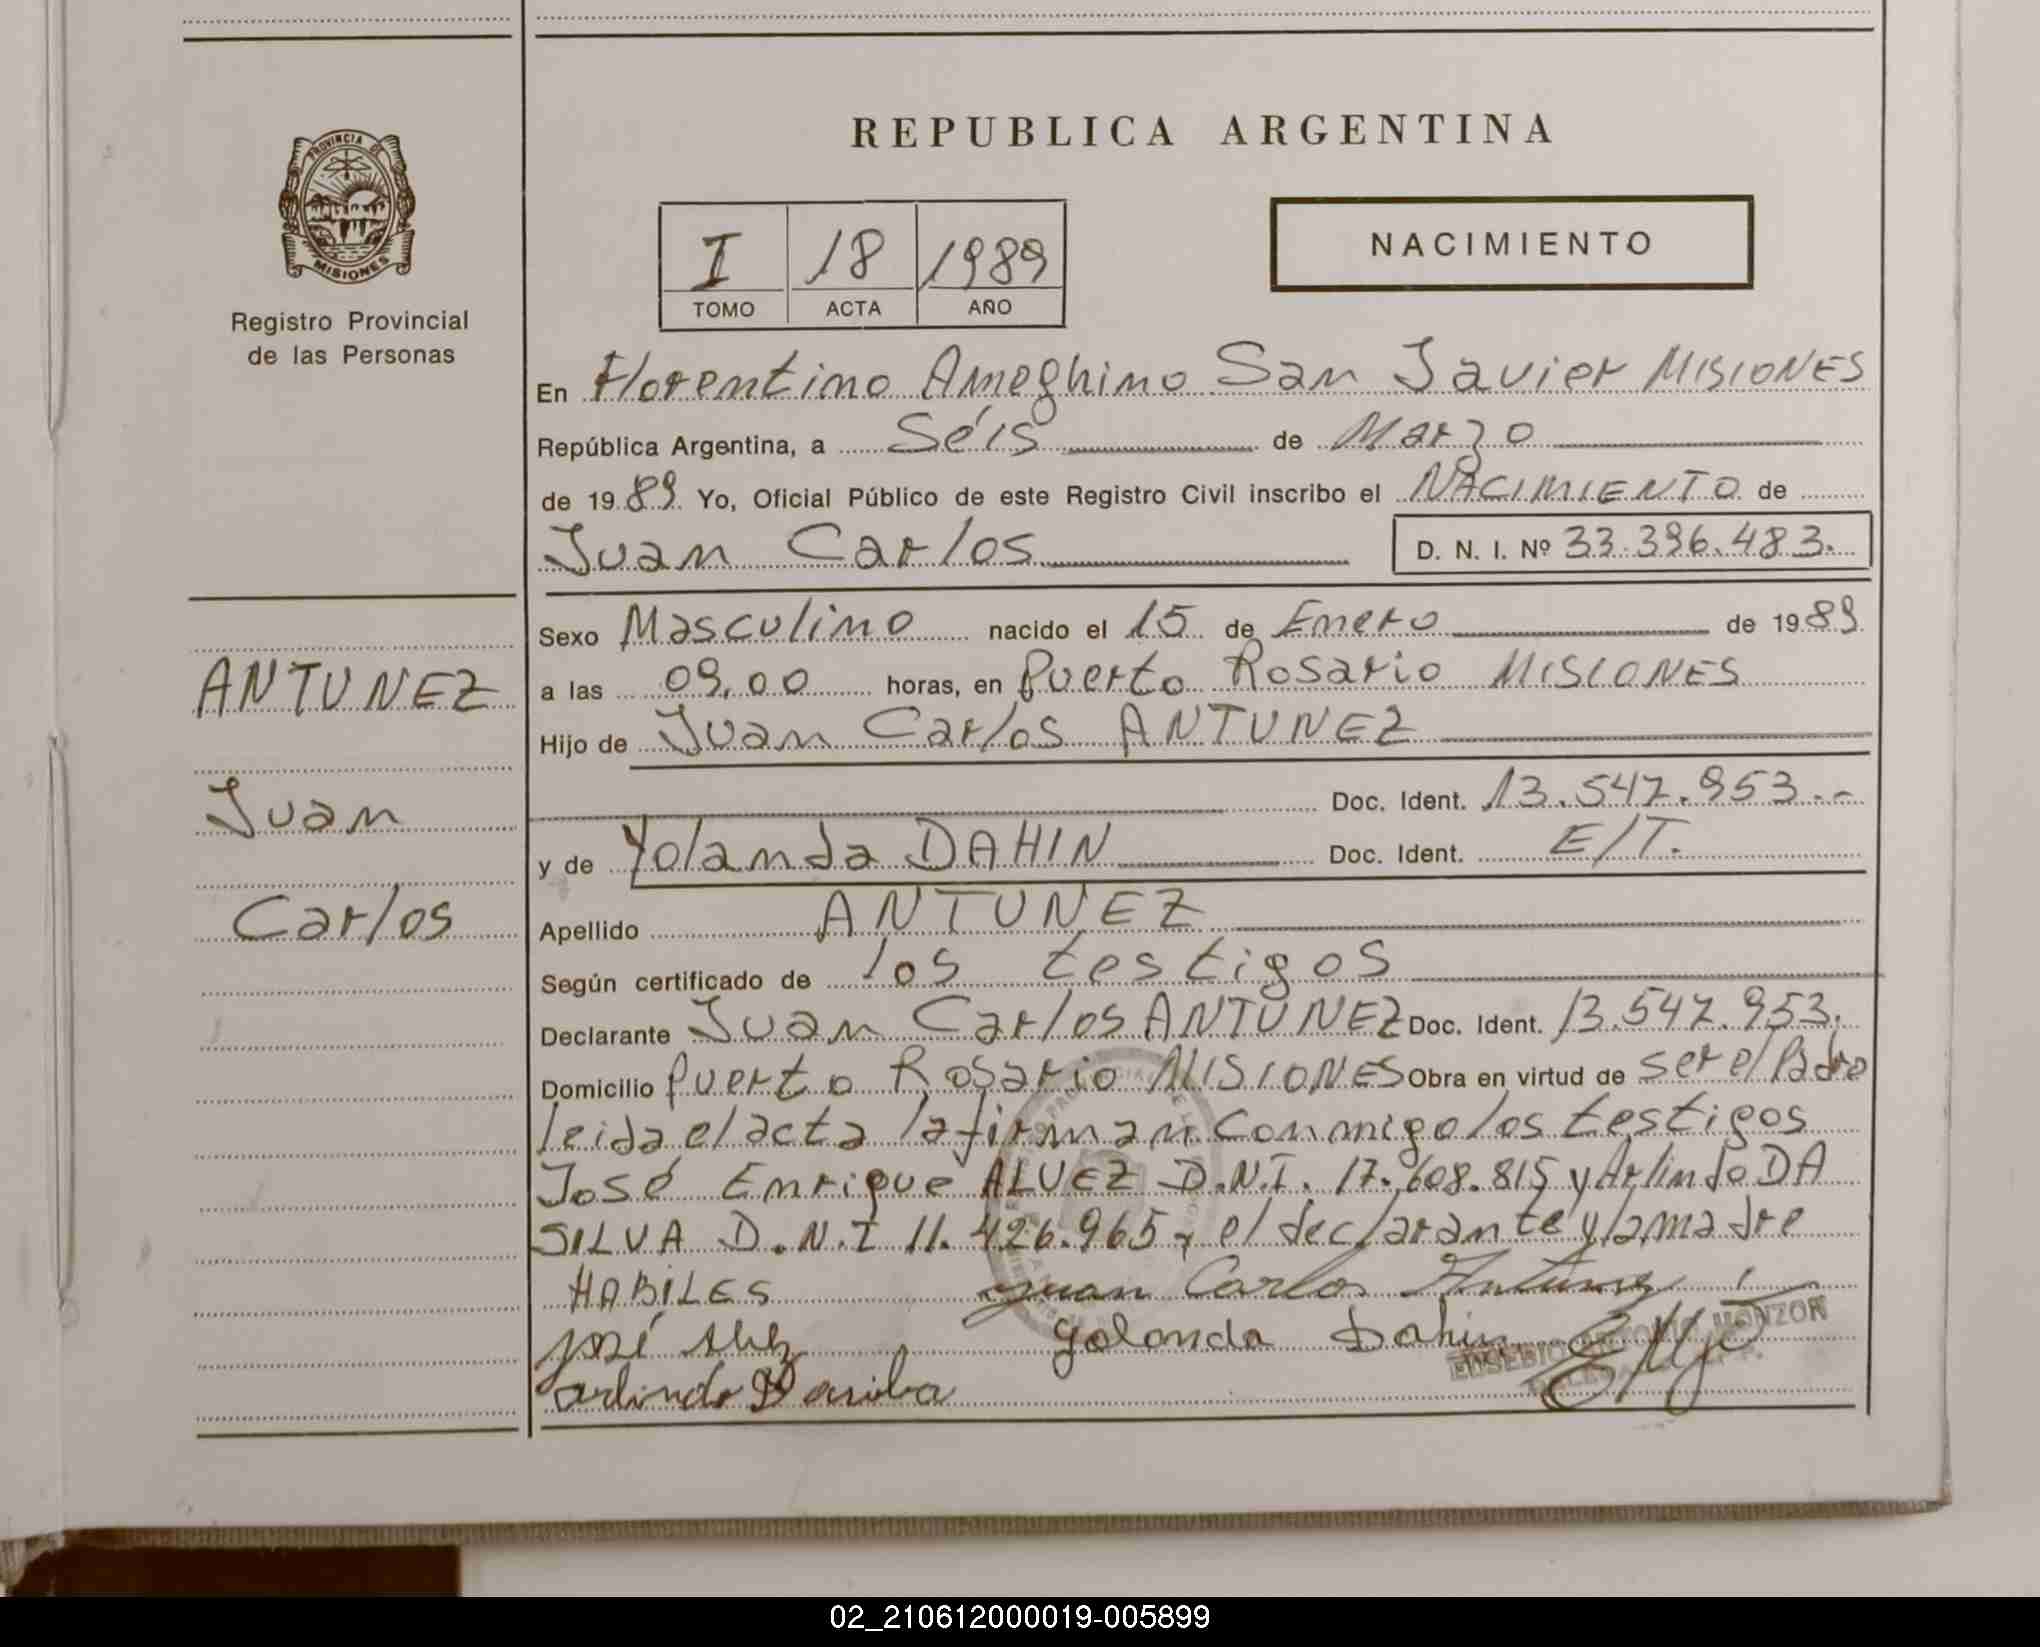 PROVINCIA DE
MISIONES
Registro Provincial
de las Personas
ANTUNEZ
Juan
Carlos
REPUBLICA ARGENTINA
I 18 1989
TOMO ACTA AÑO
NACIMIENTO
En Florentino Ameghino San Javier MISIONES
República Argentina, a Séis de Marzo
de 1989 Yo, Oficial Público de este Registro Civil inscribo el NACIMIENTO de
Juan Carlos D. N. I. Nº 33.396.483.
Sexo Masculino nacido el 15 de Enero de 1989
a las 09,00 horas, en Puerto Rosario MISIONES
Hijo de Juan Carlos ANTUNEZ
Doc. Ident. 13.547.953.-
y de Yolanda DAHIN Doc. Ident. E/T.
Apellido ANTUNEZ
Según certificado de los testigos
Declarante Juan Carlos ANTUNEZ Doc. Ident. 13.547.953.
Domicilio Puerto Rosario MISIONES Obra en virtud de ser el Padre
leida el acta la firman conmigo los testigos
José Enrique ALVEZ D.N.I. 17.608.815 y Arlindo DA
SILVA D.N.I 11.426.965, el declarante y la madre
HABILES Juan Carlos Antunez
José Alvez Yolanda Dahin
EUSEBIO ANTONIO MONZON
Arlindo Dasilva
02_210612000019-005899